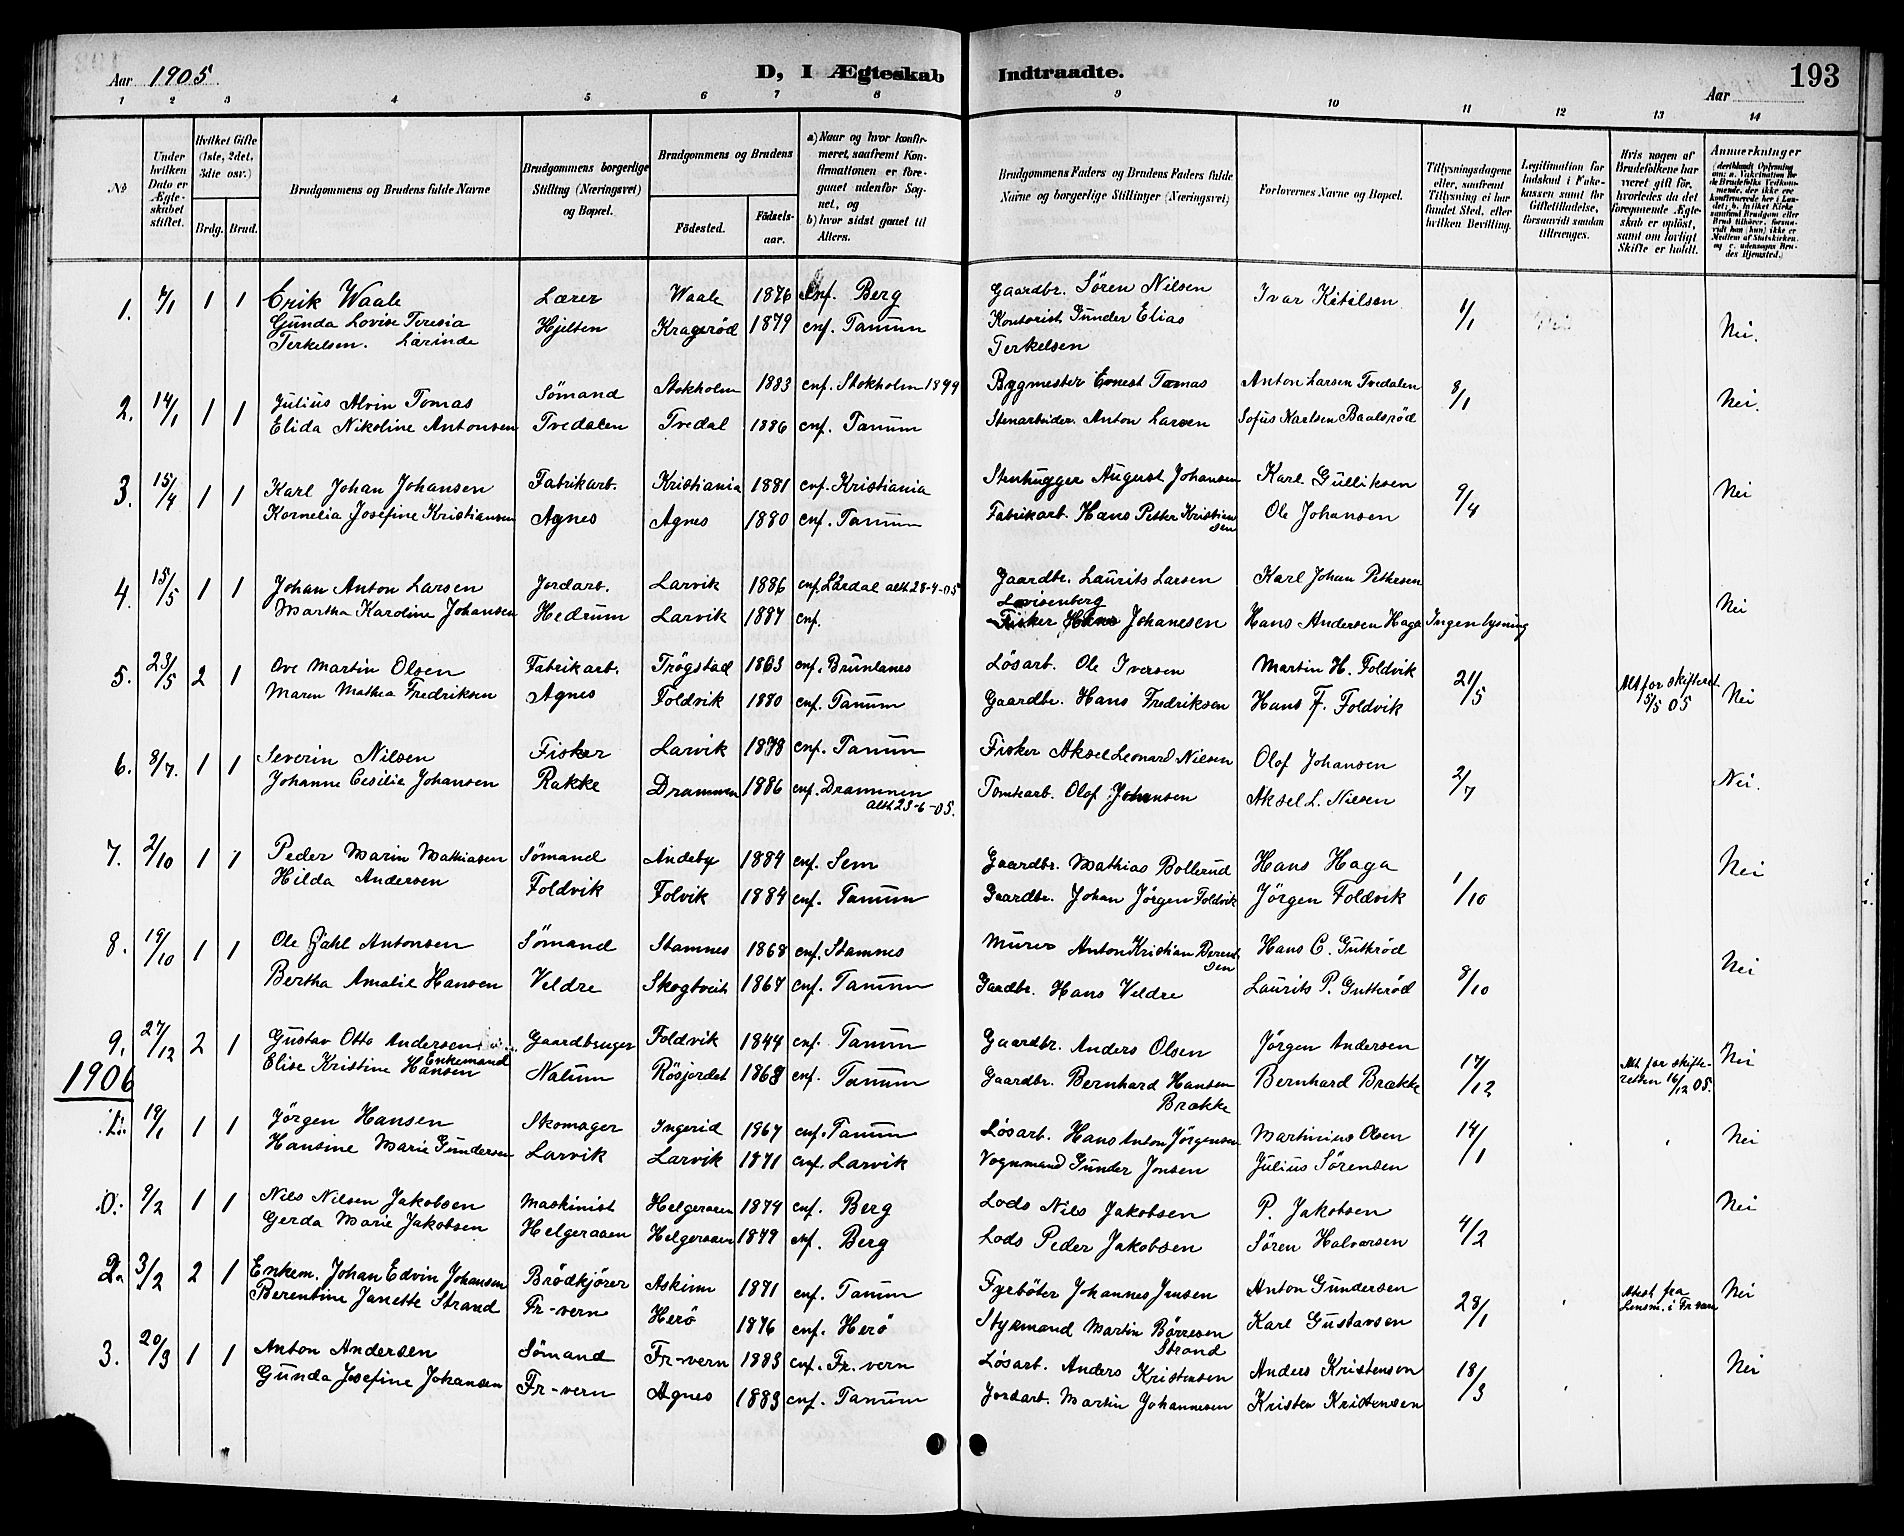 Aar 1905
D, I Ægteskab Indtraadte.
193
Aar
1 2 3 4 5 6 7 8 9 10 11 12 13 14
No
Under hvilken Dato er Ægteskabet stiftet.
Hvilket Gifte (1ste, 2det, 3die osv.)
Brdg. Brud.
Brudgommens og Brudens fulde Navne
Brudgommens borgerlige Stilling (Næringsvei) og Bopæl.
Brudgommens og Brudens
Fødested. Fødselsaar.
a) Naar og hvor konfirmeret, saafremt Konfirmationen er foregaaet udenfor Sognet, og
b) hvor sidst gaaet til Alters.
Brudgommens Faders og Brudens Faders fulde Navne og borgerlige Stillinger (Næringsvei)
Forlovernes Navne og Bopæl.
Tillysningsdagene eller, saafremt Tillysning ei har fundet Sted, efter hvilken Bevilling.
Legitimation for Indskud i Enkekassen samt for Giftetilladelse, forsaavidt saadan tiltrænges.
Hvis nogen af Brudefolkene har været gift før, hvorledes da det foregaaende Ægteskab er opløst, samt om lovligt Skifte er holdt.
Anmærkninger
1. 7/1 1 1 Erik Waale Lærer Waale 1876 cnf. Berg Gaardbr. Sören Nilsen Ivar Kitilsen 1/1 Nei.
Gunda Lovise Teresia Hjelten Kragerød 1879 cnf. Tanum Kontorist Gunder Elias
Terkelsen. Larinde Terkelsen
2. 14/1 1 1 Julius Alvin Tomas Sömand Stokholm 1883 cnf. Stokholm 1899 Bygmester Ernest Tomas Anton Larsen Tvedalen 8/1 Nei.
Elida Nikoline Antonsen Tvedalen Tvedal 1886 cnf. Tanum Stenarbeider Anton Larsen Sofus Karlsen Baalsröd
3. 15/4 1 1 Karl Johan Johansen Fabrikarb. Kristiania 1881 cnf. Kristiania Stenhugger August Johansen Karl Gulliksen 9/4 Nei
Kornelia Josefine Kristiansen Agnes Agnes 1880 cnf. Tanum Fabrikarb. Hans Petter Kristiansen Ole Johansen
4. 15/5 1 1 Johan Anton Larsen Jordarb. Larvik 1886 cnf. Lardal att. 28-4-05 Gaardbr. Laurits Larsen Karl Johan Pettersen
Lovisenberg
Martha Karoline Johansen Hedrum Larvik 1887 cnf. Fisker Hans Johanesen Hans Andersen Haga Ingen lysning Nei
5. 23/5 2 1 Ove Martin Olsen Fabrikarb. Trögstad 1863 cnf. Brunlanes Lösarb. Ole Iversen Martin H. Foldvik 21/5 Att for skifteret 15/5 05 Nei
Maren Mathea Fredriksen Agnes Foldvik 1880 cnf. Tanum Gaardbr. Hans Fredriksen Hans F. Foldvik
6. 8/7. 1 1 Severin Nilsen Fisker Larvik 1878 cnf. Tanum Fisker Aksel Leonard Nilsen Olof Johansen 2/7 Nei.
Johanne Cesilie Johansen Rakke Drammen 1886 cnf. Drammen Tomtearb. Olof Johansen Aksel L. Nilsen
att. 23-6-05.
7. 2/10 1 1 Peder Marin Mathiasen Sömand Andeby 1884 cnf. Sem Gaardbr. Mathias Bollerud Hans Haga 1/10 Nei
Hilda Andersen Foldvik Folvik 1884 cnf. Tanum Gaardbr. Johan Jörgen Foldvik Jörgen Foldvik
8. 19/10 1 1 Ole Dahl Antonsen Sömand Stamnes 1868 cnf. Stamnes Murer Anton Kristian Berentsen Hans C. Gutteröd 8/10 Nei
Bertha Amalie Hansen Veldre Skogtveit 1867 cnf. Tanum Gardbr. Hans Veldre Laurits P. Gutteröd
9. 27/12 2 1 Gustav Otto Andersen Gaardbruger Foldvik 1844 cnf. Tanum Gaardbr. Anders Olsen Jörgen Andersen 17/12 Att. for skifteretten 16/12 05. Nei
Enkemand
Elise Kristine Hansen Nalum Rösjordet 1868 cnf. Tanum Gaardbr. Bernhard Hansen Brække Bernhard Brække
1906
19/1 1 1 Jörgen Hansen Skomager Ingerid 1867 cnf. Tanum Lösarb. Hans Anton Jörgensen Martinius Olsen 14/1 Nei
Hansine Marie Gundersen Larvik Larvik 1871 cnf. Larvik Vognmand Gunder Jonsen Julius Sörensen
0. 9/2 1 1 Nils Nilsen Jakobsen Maskinist Helgeraaen 1874 cnf. Berg Lods Nils Jakobsen P. Jakobsen 4/2 Nei
Gerda Marie Jakobsen Helgeraaen Helgeraaen 1879 cnf. Berg Lods Peder Jakobsen Sören Halvorsen
2. 3/2 2 1 Enkem. Johan Edvin Johansen Brödkjörer Askim 1871 cnf. Tanum Fyrböter Johannes Jensen Anton Gundersen 28/1 Attest fra Lensm. i Fr.vern Nei
Berentine Janette Strand Fr-vern Herö 1876 cnf. Herö Styrmand Martin Börresen Strand Karl Gustavsen
3. 20/3 1 1 Anton Andersen Sömand Fr-vern 1883 cnf. Fr. vern Lösarb. Anders Kristensen Anders Kristensen 18/3 Nei
Gunda Josefine Johansen Fr-vern Agnes 1883 cnf. Tanum Jordarb. Martin Johannesen Kristen Kristensen